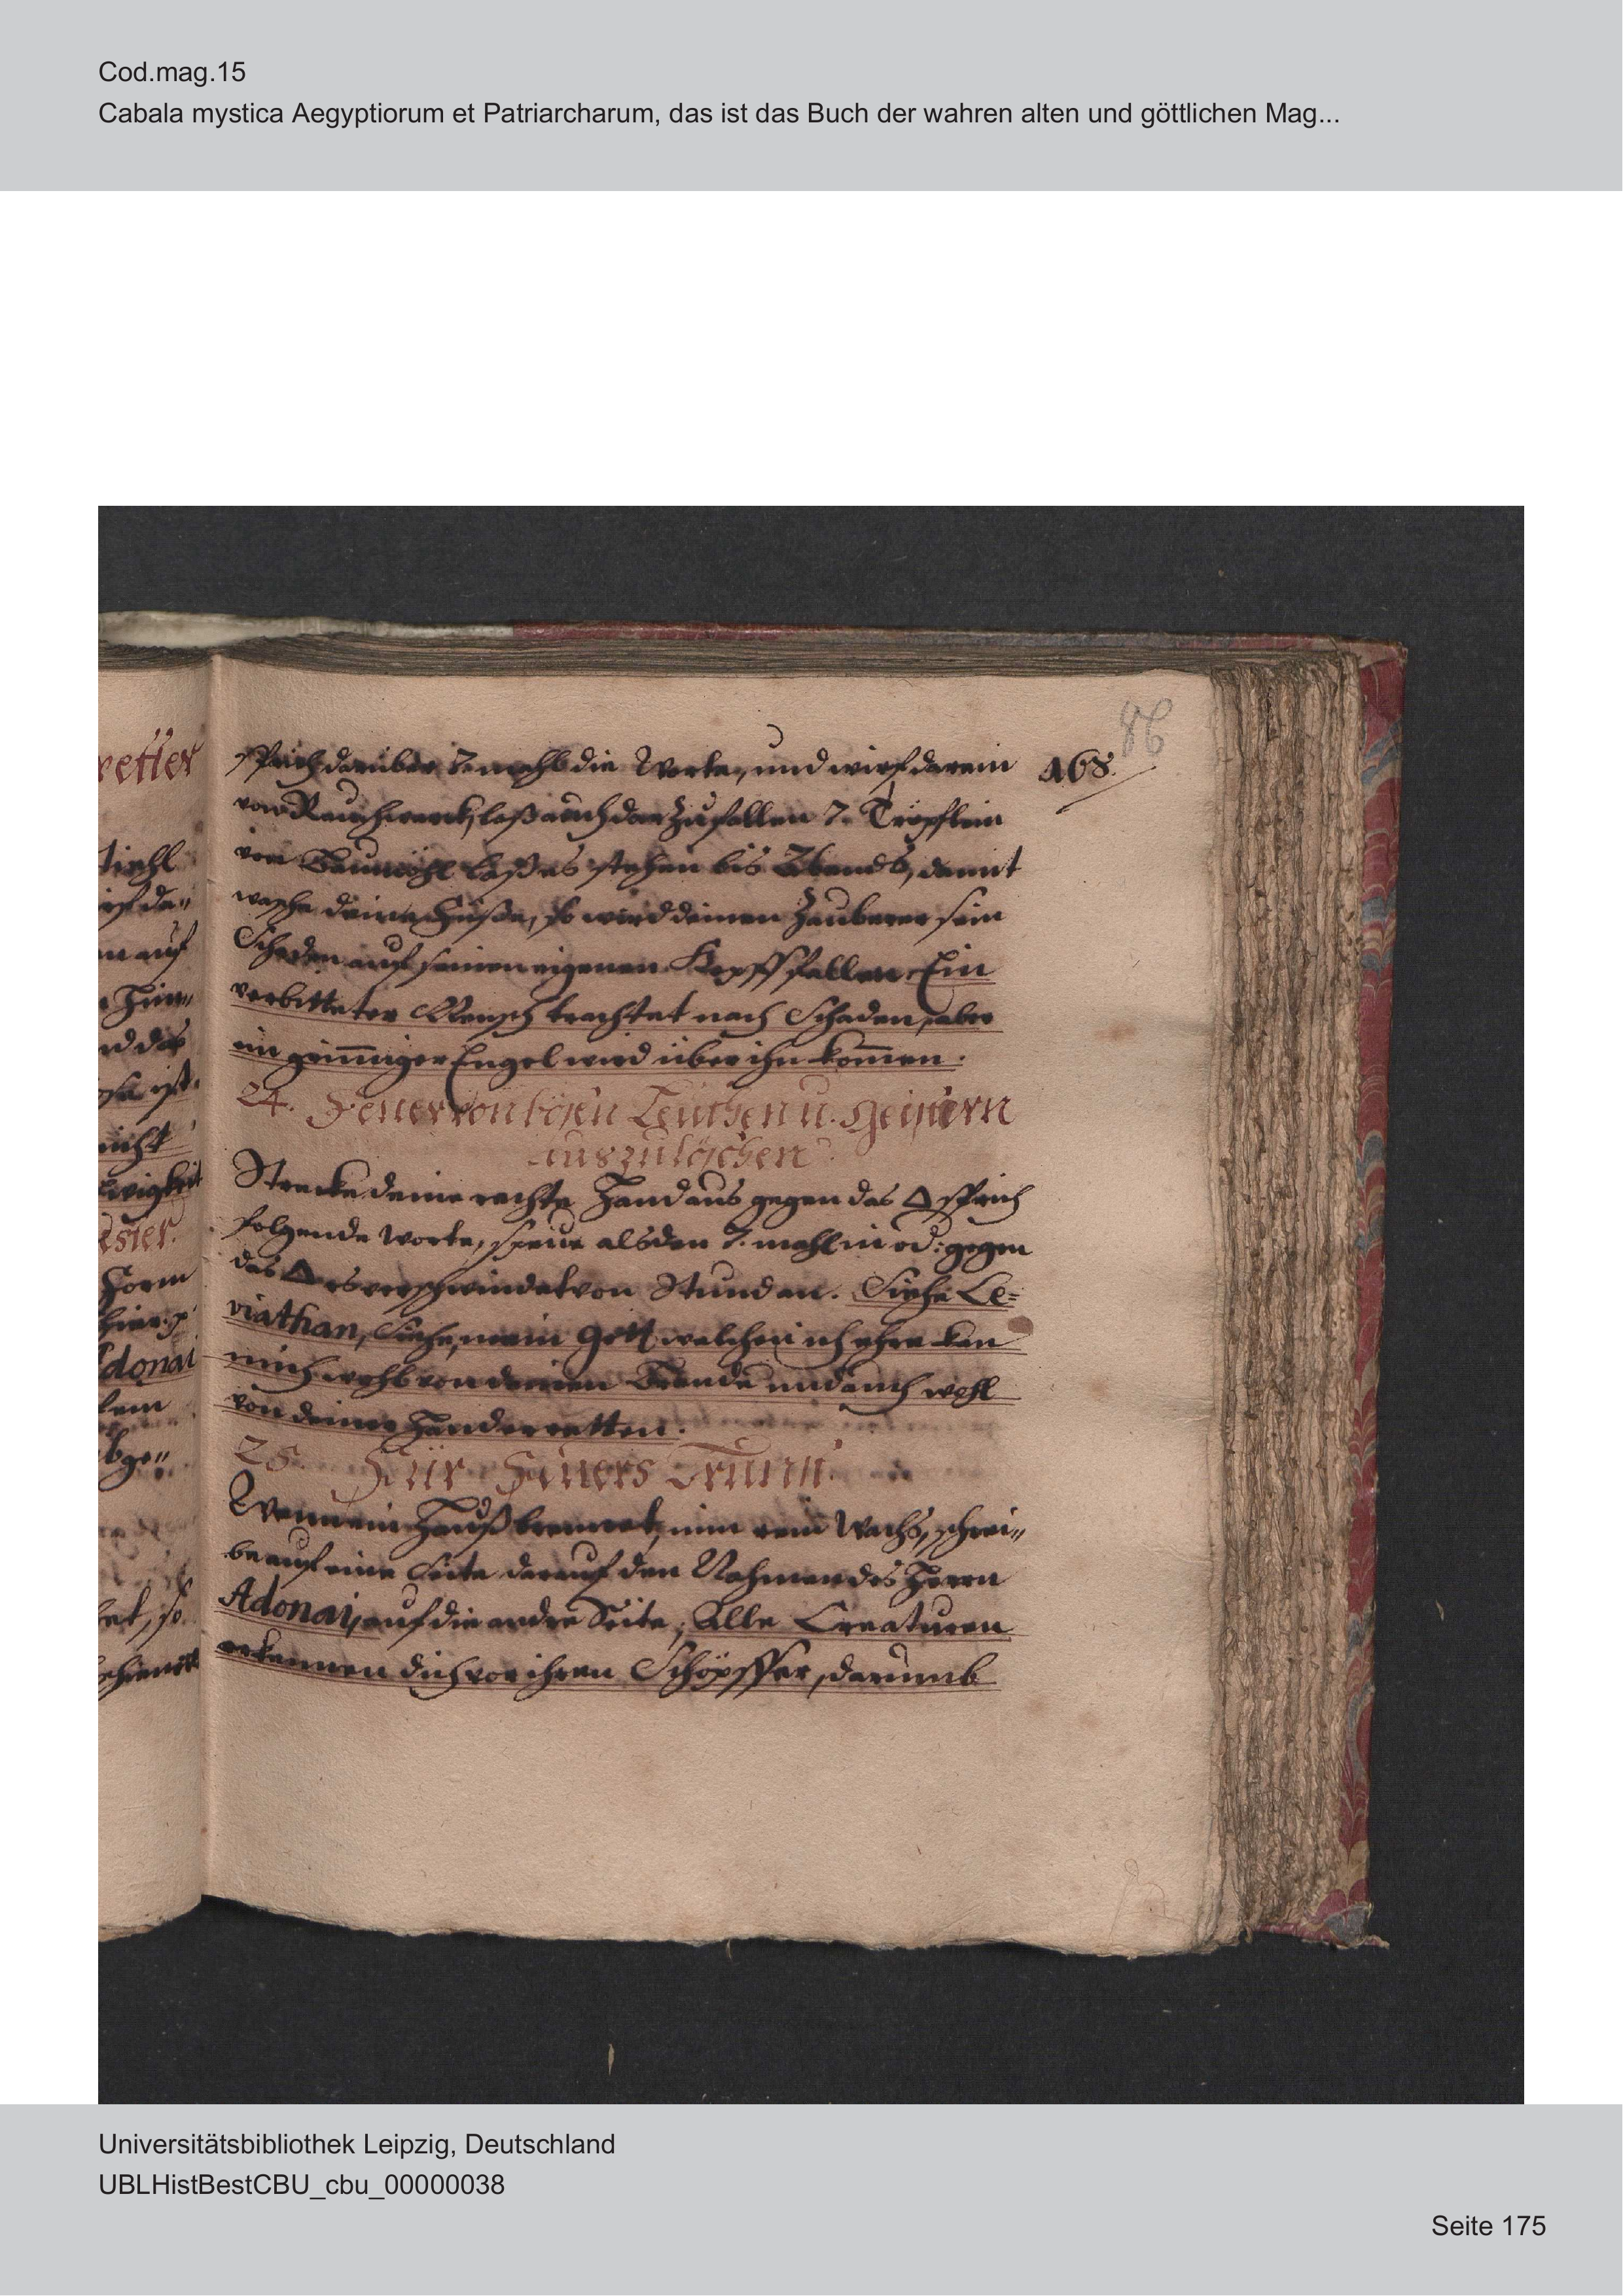 Cod.mag.15
Cabala mystica Aegyptiorum et Patriarcharum, das ist das Buch der wahren alten und göttlichen Mag...
86
168.
sprich darüber 7. mahl die Worte, und wirf darein
vom Rauchwerck, laß auch darzu fallen 7. Tröpflein
von Baumöhl laß es stehen bis Abends, damit
wasche deine Füße, so wird deinen Zauberer sein
Schaden auf seinen eigenen Kopff fallen. Ein
verbitterter Mensch trachtet nach Schaden, aber
ein grimmiger Engel wird über ihn kommen.
24. Feuer von bösen Leuthen u. Geistern
auszulöschen
Strecke deine rechte Hand aus gegen das △ sprich
folgende Worte, speue alsden 7. mahl in od: gegen
das △ es verschwindet von Stund an. Siehe Le-
viathan, Siehe, mein Gott welchen ich ehre kan
mich wohl von deinen Brande und auch wohl
von deiner Hand erretten.
25. Für Feuers Brunn
Wenn ein Hauß brennet, nim rein Wachs, schrei-
be auf eine Seite darauf den Nahmen des Herrn
Adonai, auf die andre Seite; Alle Creaturen
erkennen dich vor ihren Schöpffer, darumb
retter
donai
auf
nicht
ewigkeit
Form
Universitätsbibliothek Leipzig, Deutschland
UBLHistBestCBU_cbu_00000038
Seite 175